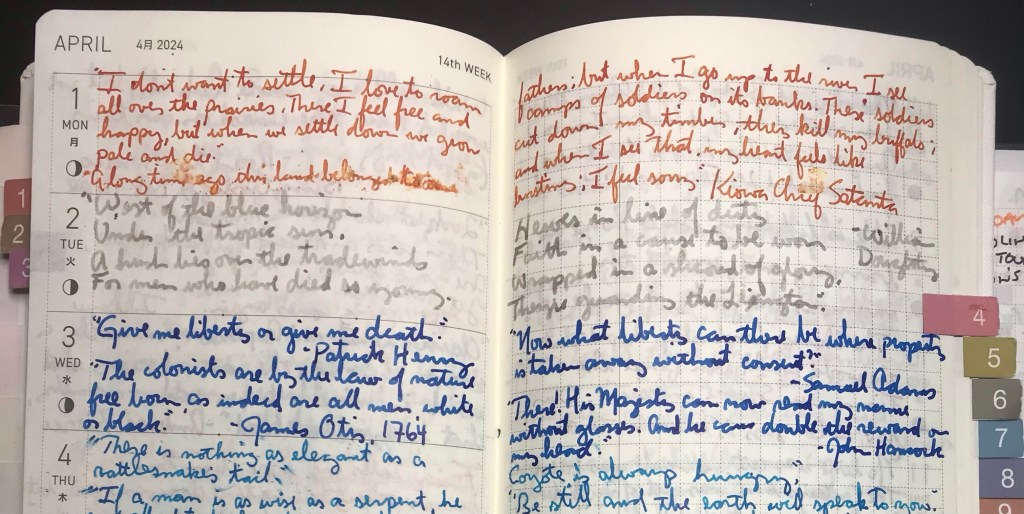 APRIL 4月 2024
14th WEEK
1
MON
月
"I don't want to settle, I love to roam
all over the prairies. There I feel free and
happy, but when we settle down we grow
pale and die."
"A long time ago this land belonged to our
fathers; but when I go up to the river I see
camps of soldiers on its banks. These soldiers
cut down my timber, they kill my buffalo;
and when I see that my heart feels like
bursting; I feel sorry" Kiowa Chief Satanta
2
TUE
火
"West of the blue horizon
Under the tropic sun.
A hush lies over the tradewinds
For men who have died so young.
Heroes in line of duty
Faith in a cause to be won
Wrapped in a shroud of glory
They're guarding the Lexington".
-William
Doughty
3
WED
水
"Give me liberty or give me death."
Patrick Henry
"The colonists are by the law of nature
free born as indeed are all men, white
or black." -James Otis, 1764
"Now what liberty can there be where property
is taken away without consent?"
-Samuel Adams
"There! His Majesty can now read my name
without glasses. And he can double the reward on
my head." -John Hancock
4
THU
木
"There is nothing as elegant as a
rattlesnake's tail."
"If a man is as wise as a serpent, he
Coyote is always hungry,"
"Be still and the earth will speak to you."
1
2
3
4
5
6
7
8
9